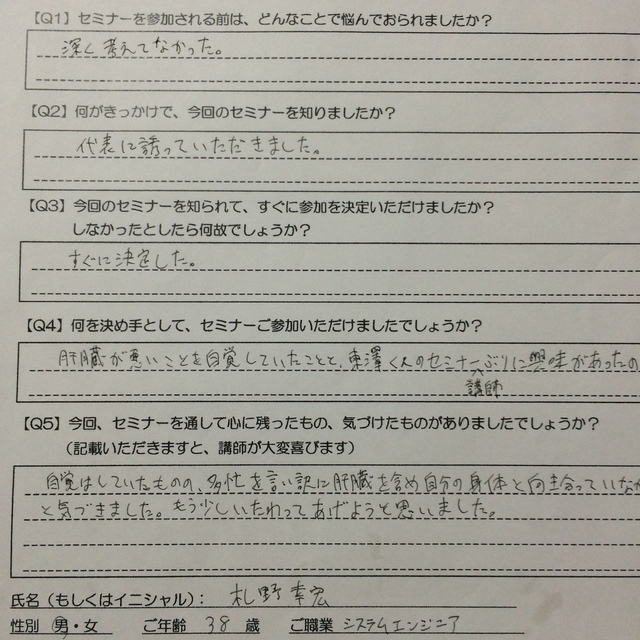 【Q1】セミナーを参加される前は、どんなことで悩んでおられましたか？
深く考えてなかった。
【Q2】何がきっかけで、今回のセミナーを知りましたか？
代表に誘っていただきました。
【Q3】今回のセミナーを知られて、すぐに参加を決定いただけましたか？
しなかったとしたら何故でしょうか？
すぐに決定した。
【Q4】何を決め手として、セミナーご参加いただけましたでしょうか？
肝臓が悪いことを自覚していたことと、東澤くんのセミナーぶりに興味があったの
講師
【Q5】今回、セミナーを通して心に残ったもの、気づけたものがありましたでしょうか？
（記載いただきますと、講師が大変喜びます）
自覚はしていたものの、多忙を言い訳に肝臓を含め自分の身体と向き合っていなか
と気づきました。もう少しいたわってあげようと思いました。
氏名（もしくはイニシャル）： 札野 幸宏
性別 男・女 ご年齢 38 歳 ご職業 システムエンジニア